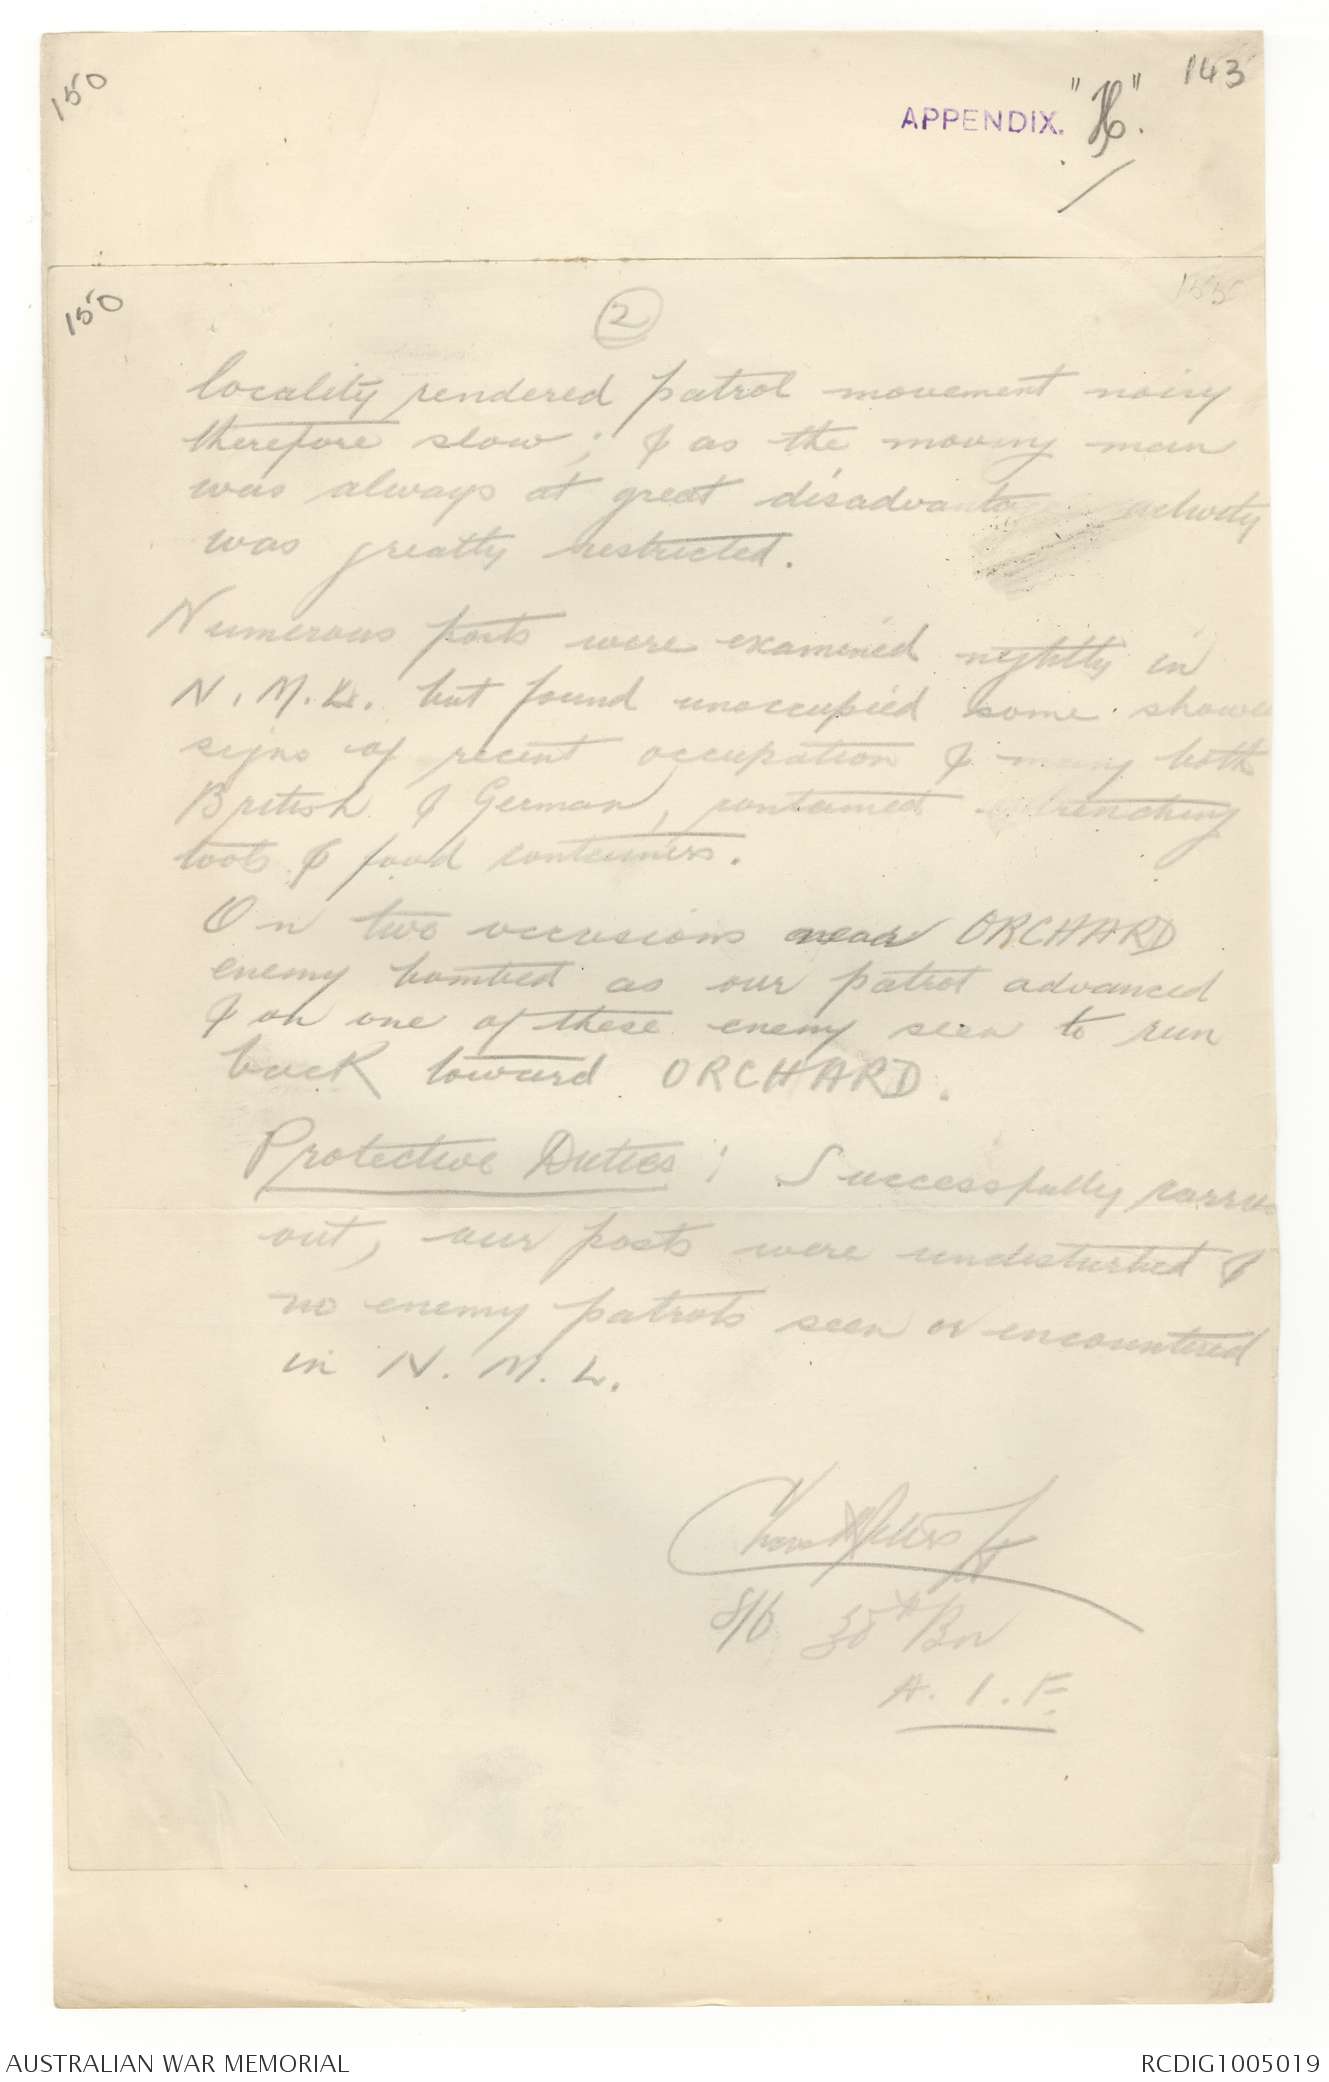 150
143
APPENDIX. "H".
150
155
2
locality rendered patrol movement noisy
therefore slow; & as the moving man
was always at great disadvantage activity
was greatly restricted.
Numerous posts were examined nightly in
N.M.L. but found unoccupied some showed
signs of recent occupation & many both
British & German, contained trenching
tools & food containers.
On two occasions near ORCHARD
enemy bombed as our patrol advanced
& on one of these enemy seen to run
back toward ORCHARD.
Protective Duties: Successfully carried
out, our posts were undisturbed &
no enemy patrols seen or encountered
in N.M.L.
Lt
8/6 35th Bn
A.I.F.
AUSTRALIAN WAR MEMORIAL
RCDIG1005019